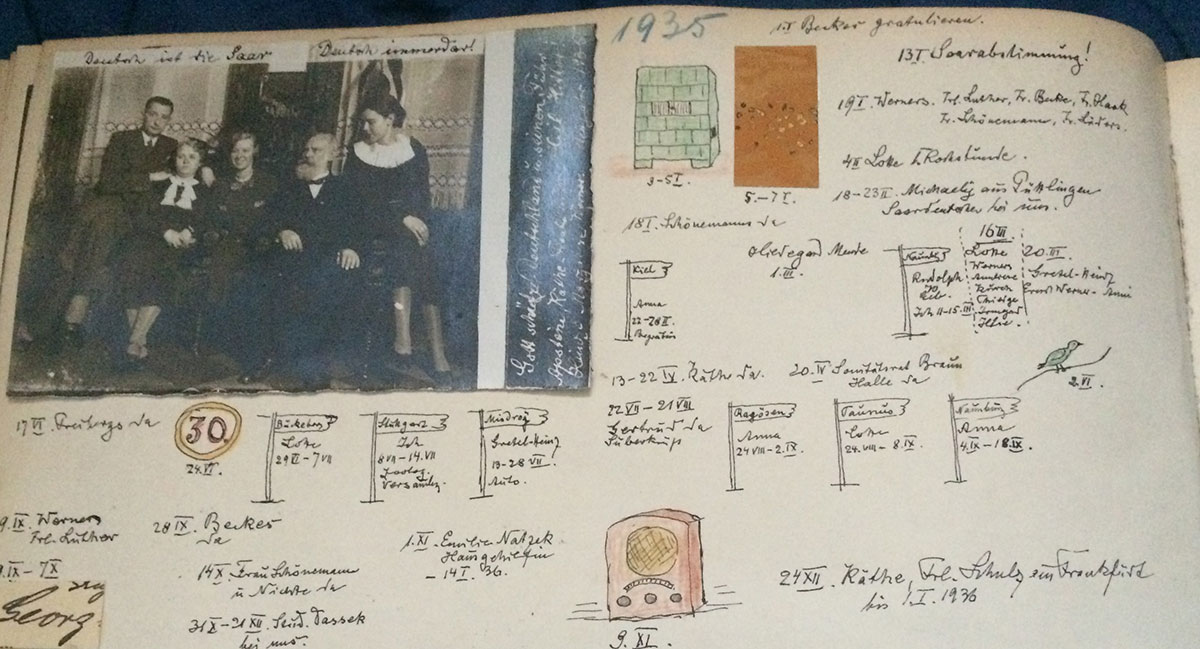 1935
Deutsch ist die Saar
Deutsch immerdar!
1.I. Becker gratulieren.
13.I. Saarabstimmung!
19.I. Werners. Frl. Luther, Fr. Becke, Fr. Haak
Fr. Schönemann, Fr. Lüders.
3-5.I.
5.-7.I.
4.II. Lotte
18-23.II. Michaely aus Püttlingen
Saardeutscher bei uns.
18.I. Schönemanns da
Hildegard Mende
1.III.
Kiel
Anna
22-28.II.
Begräbnis
Rudolph
Ich 11-15.III.
16.III.
Lotte
Werners
Irmgard
Ilse.
20.III.
Gretel-Heinz
Ernst Werner-Anni
13-22.IV. Käthe da.
20.IV. Sanitätsrat Braun
Halle da
2.VI.
17.VI. Freibergs da
30.
24.VI.
Bückeburg
Lotte
29.VI-7.VII
Stuttgart
Ich
8.VII-14.VII
Zoolog.
Versamlg.
Misdroy
Gretel-Heinz
13-28.VII.
Auto.
22.VII-21.VIII
Gertrud da
Ragösen
Anna
24.VIII-2.IX.
Taunus
Lotte
24.VIII-8.IX.
Naumburg
Anna
4.IX-18.IX.
9.IX. Werners
Frl. Luther
28.IX. Beckes
da
.IX-7.X
Georg
14.X. Frau Schönemann
u. Nichte da
31.X-21.XII. Stud. Dassek
bei uns.
1.XI. Emilie Natzek
Hausgehilfin
-14.I.36.
9.XI.
24.XII. Käthe, Frl. Schulz in Frankfurt
bis 1.I.1936